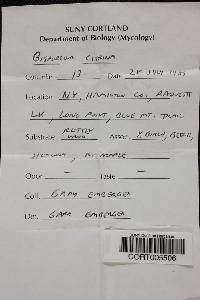 SUNY CORTLAND
Department of Biology (Mycology)
Bisporella citrina
Coll. No. 13 Date 28 July
Location NY, Hamilton Co., Raquett
Lk, Long Point, Blue Mt. Trail
Substrate Rotty wood Assoc. Y. Birch, Beech,
Hemlock, Maple
Odor — Taste —
Coll. Gary Emberger
Det. Gary Emberger
CORT005506